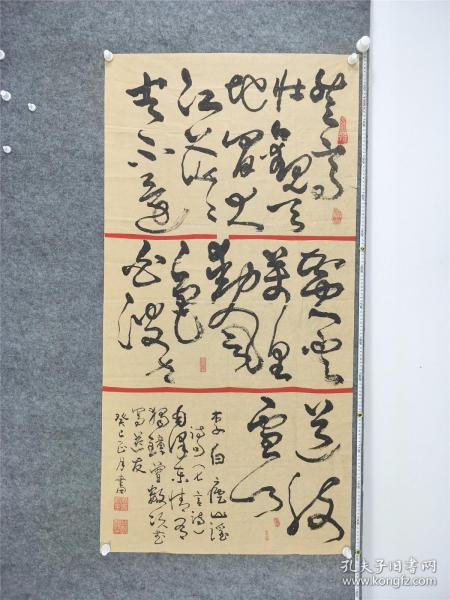 登高
壮观天
地间大
江茫茫
去不还
黄云
万里
动风
色
白波九
道流
雪山
李白庐山谣
诗句（七言诗）
毛泽东情有
独钟曾数次书
写 友
癸巳正月 书
孔夫子旧书网
book.kongfz.com